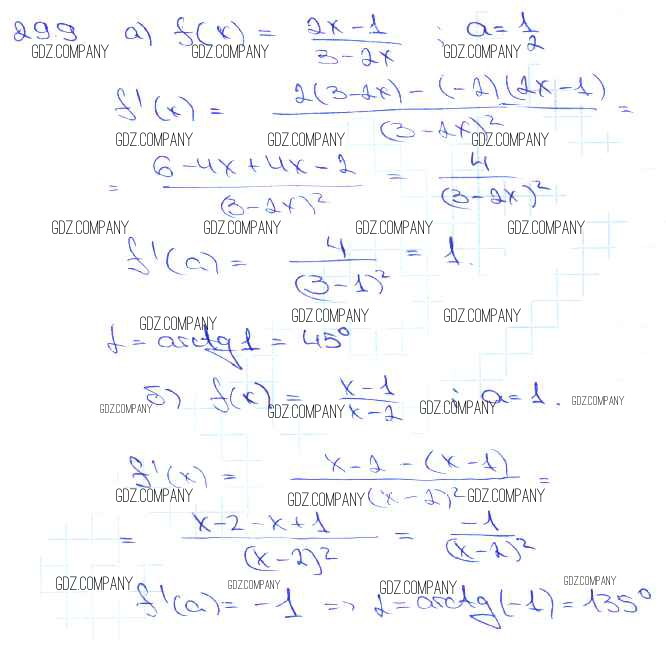 299 а) f(x) = (2x-1)/(3-2x) ; a = 1/2
GDZ.COMPANY GDZ.COMPANY GDZ.COMPANY
f'(x) = (2(3-2x) - (-2)(2x-1))/(3-2x)² =
GDZ.COMPANY GDZ.COMPANY GDZ.COMPANY
= (6-4x+4x-2)/(3-2x)² = 4/(3-2x)²
GDZ.COMPANY GDZ.COMPANY GDZ.COMPANY GDZ.COMPANY
f'(a) = 4/(3-1)² = 1.
GDZ.COMPANY GDZ.COMPANY GDZ.COMPANY
α = arctg 1 = 45°
б) f(x) = (x-1)/(x-2) ; a = 1.
GDZ.COMPANY GDZ.COMPANY GDZ.COMPANY GDZ.COMPANY
f'(x) = (x-2-(x-1))/(x-2)² =
GDZ.COMPANY GDZ.COMPANY GDZ.COMPANY
= (x-2-x+1)/(x-2)² = -1/(x-2)²
GDZ.COMPANY GDZ.COMPANY GDZ.COMPANY GDZ.COMPANY
f'(a) = -1 => α = arctg(-1) = 135°